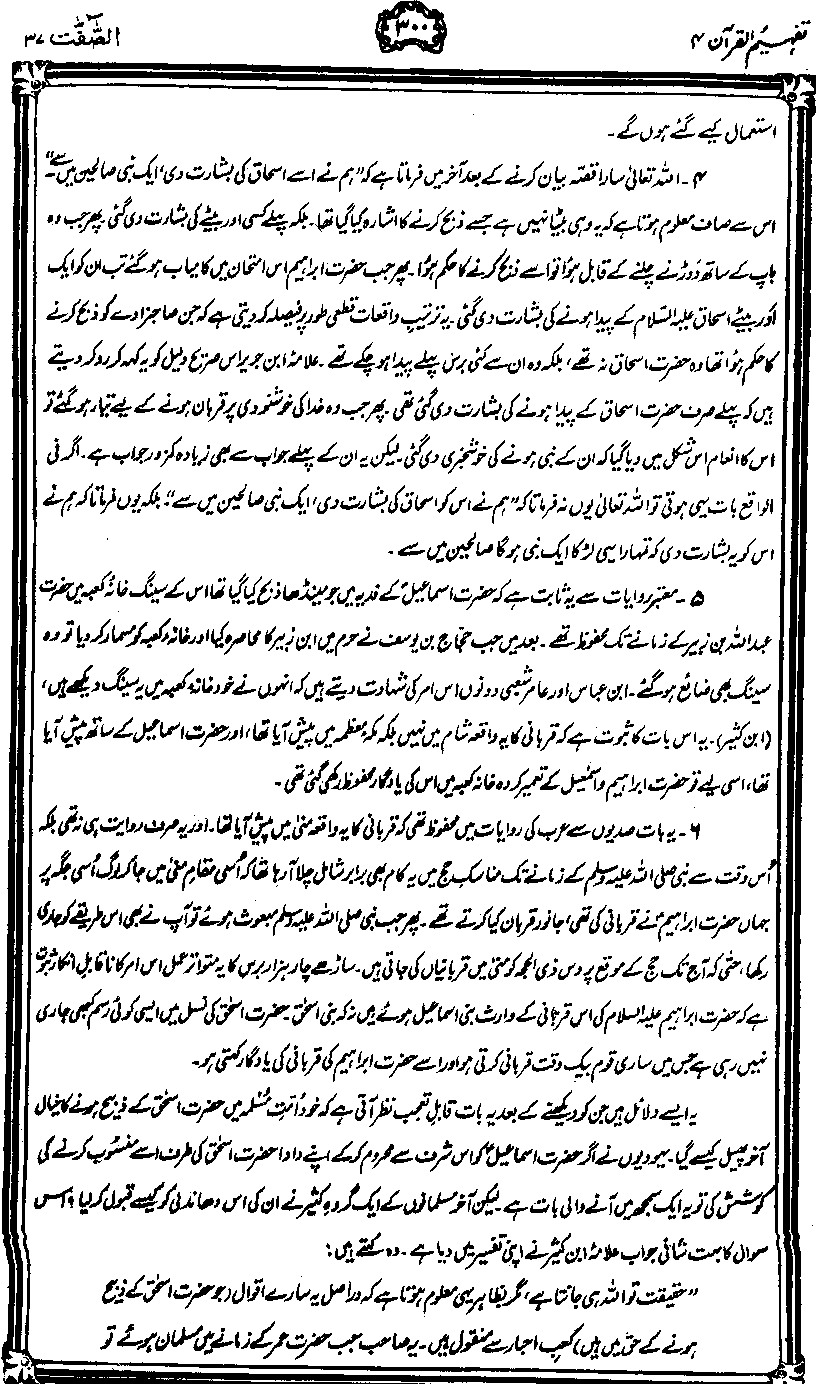 تفہیم القرآن ۴
۳۰۰
الصّٰفّٰت ۳۷
استعمال کیے گئے ہوں گے۔
۴۔ اللہ تعالیٰ سارا قصّہ بیان کرنے کے بعد آخر میں فرماتا ہے کہ ”ہم نے اسے اسحاق کی بشارت دی، ایک نبی صالحین میں سے“۔
اس سے صاف معلوم ہوتا ہے کہ یہ وہی بیٹا نہیں ہے جسے ذبح کرنے کا اشارہ کیا گیا تھا۔ بلکہ پہلے کسی اور بیٹے کی بشارت دی گئی۔ پھر جب وہ
باپ کے ساتھ دَوڑنے چلنے کے قابل ہوا تو اسے ذبح کرنے کا حکم ہوا۔ پھر جب حضرت ابراہیم اس امتحان میں کامیاب ہو گئے تب ان کو ایک
اَور بیٹے اسحاق علیہ السّلام کے پیدا ہونے کی بشارت دی گئی۔ یہ ترتیبِ واقعات قطعی طور پر فیصلہ کر دیتی ہے کہ جن صاجزادے کو ذبح کرنے
کا حکم ہوا تھا وہ حضرت اسحاق نہ تھے، بلکہ وہ ان سے کئی برس پہلے پیدا ہو چکے تھے۔ علامہ ابن جریر اس صریح دلیل کو یہ کہہ کر رد کر دیتے
ہیں کہ پہلے صرف حضرت اسحاق کے پیدا ہونے کی بشارت دی گئی تھی۔ پھر جب وہ خدا کی خوشنودی پر قربان ہونے کے لیے تیار ہو گئے تو
اس کا انعام اس شکل میں دیا گیا کہ ان کے نبی ہونے کی خوشخبری دی گئی۔ لیکن یہ ان کے پہلے جواب سے بھی زیادہ کمزور جواب ہے۔ اگر فی
الواقع بات یہی ہوتی تو اللہ تعالیٰ یوں نہ فرماتا کہ ”ہم نے اس کو اسحاق کی بشارت دی، ایک نبی صالحین میں سے“۔ بلکہ یوں فرماتا کہ ہم نے
اس کو یہ بشارت دی کہ تمہارا یہی لڑکا ایک نبی ہو گا صالحین میں سے۔
۵۔ معتبر روایات سے یہ ثابت ہے کہ حضرت اسماعیلؑ کے فدیہ میں جو مینڈھا ذبح کیا گیا تھا اس کے سینگ خانۂ کعبہ میں حضرت
عبداللہ بن زبیر کے زمانے تک محفوظ تھے۔ بعد میں جب حجاج بن یوسف نے حرم میں ابن زبیر کا محاصرہ کیا اور خانۂ کعبہ کو مسمار کر دیا تو وہ
سینگ بھی ضائع ہو گئے۔ ابن عباس اور عامر شعبی دونوں اس امر کی شہادت دیتے ہیں کہ انہوں نے خود خانۂ کعبہ میں یہ سینگ دیکھے ہیں،
(ابن کثیر)۔ یہ اس بات کا ثبوت ہے کہ قربانی کا یہ واقعہ شام میں نہیں بلکہ مکہ معظمہ میں پیش آیا تھا، اور حضرت اسماعیل کے ساتھ پیش آیا
تھا، اسی لیے تو حضرت ابراہیم و اسمٰعیل کے تعمیر کردہ خانہ کعبہ میں اس کی یادگار محفوظ رکھی گئی تھی۔
۶۔ یہ بات صدیوں سے عرب کی روایات میں محفوظ تھی کہ قربانی کا یہ واقعہ منیٰ میں پیش آیا تھا۔ اور یہ صرف روایت ہی نہ تھی بلکہ
اُس وقت سے نبی صلی اللہ علیہ وسلم کے زمانے تک مناسکِ حج میں یہ کام بھی برابر شامل چلا آ رہا تھا کہ اُسی مقامِ منیٰ میں جا کر لوگ اُسی جگہ پر
جہاں حضرت ابراہیمؑ نے قربانی کی تھی، جانور قربان کیا کرتے تھے۔ پھر جب نبی صلی اللہ علیہ وسلم مبعوث ہوئے تو آپ نے بھی اسی طریقے کو جاری
رکھا، حتٰی کہ آج تک حج کے موقع پر دس ذی الحجہ کو منیٰ میں قربانیاں کی جاتی ہیں۔ ساڑھے چار ہزار برس کا یہ متواتر عمل اس امر کا ناقابلِ انکار ثبوت
ہے کہ حضرت ابراہیم علیہ السلام کی اس قربانی کے وارث بنی اسماعیل ہوئے ہیں نہ کہ بنی اسحٰق۔ حضرت اسحٰق کی نسل میں ایسی کوئی رسم کبھی جاری
نہیں رہی ہے جس میں ساری قوم بیک وقت قربانی کرتی ہو اور اسے حضرت ابراہیم کی قربانی کی یادگار کہتی ہو۔
یہ ایسے دلائل ہیں جن کو دیکھنے کے بعد یہ بات قابلِ تعجب نظر آتی ہے کہ خود اُمّتِ مُسلمہ میں حضرت اسحٰق کے ذبیح ہونے کا خیال
آخر پھیل کیسے گیا۔ یہودیوں نے اگر حضرت اسماعیلؑ کو اس شرف سے محروم کر کے اپنے دادا حضرت اسحٰق کی طرف اسے منسُوب کرنے کی
کوشش کی تو یہ ایک سمجھ میں آنے والی بات ہے۔ لیکن آخر مسلمانوں کے ایک گروہِ کثیر نے ان کی اس دھاندلی کو کیسے قبول کر لیا؟ اس
سوال کا بہت شافی جواب علامہ ابن کثیر نے اپنی تفسیر میں دیا ہے۔ وہ کہتے ہیں:
”حقیقت تو اللہ ہی جانتا ہے، مگر بظاہر یہی معلوم ہوتا ہے کہ دراصل یہ سارے اقوال (جو حضرت اسحٰق کے ذبیح
ہونے کے حق میں ہیں) کعب احبار سے منقول ہیں۔ یہ صاحب جب حضرت عمر کے زمانے میں مسلمان ہوئے تو